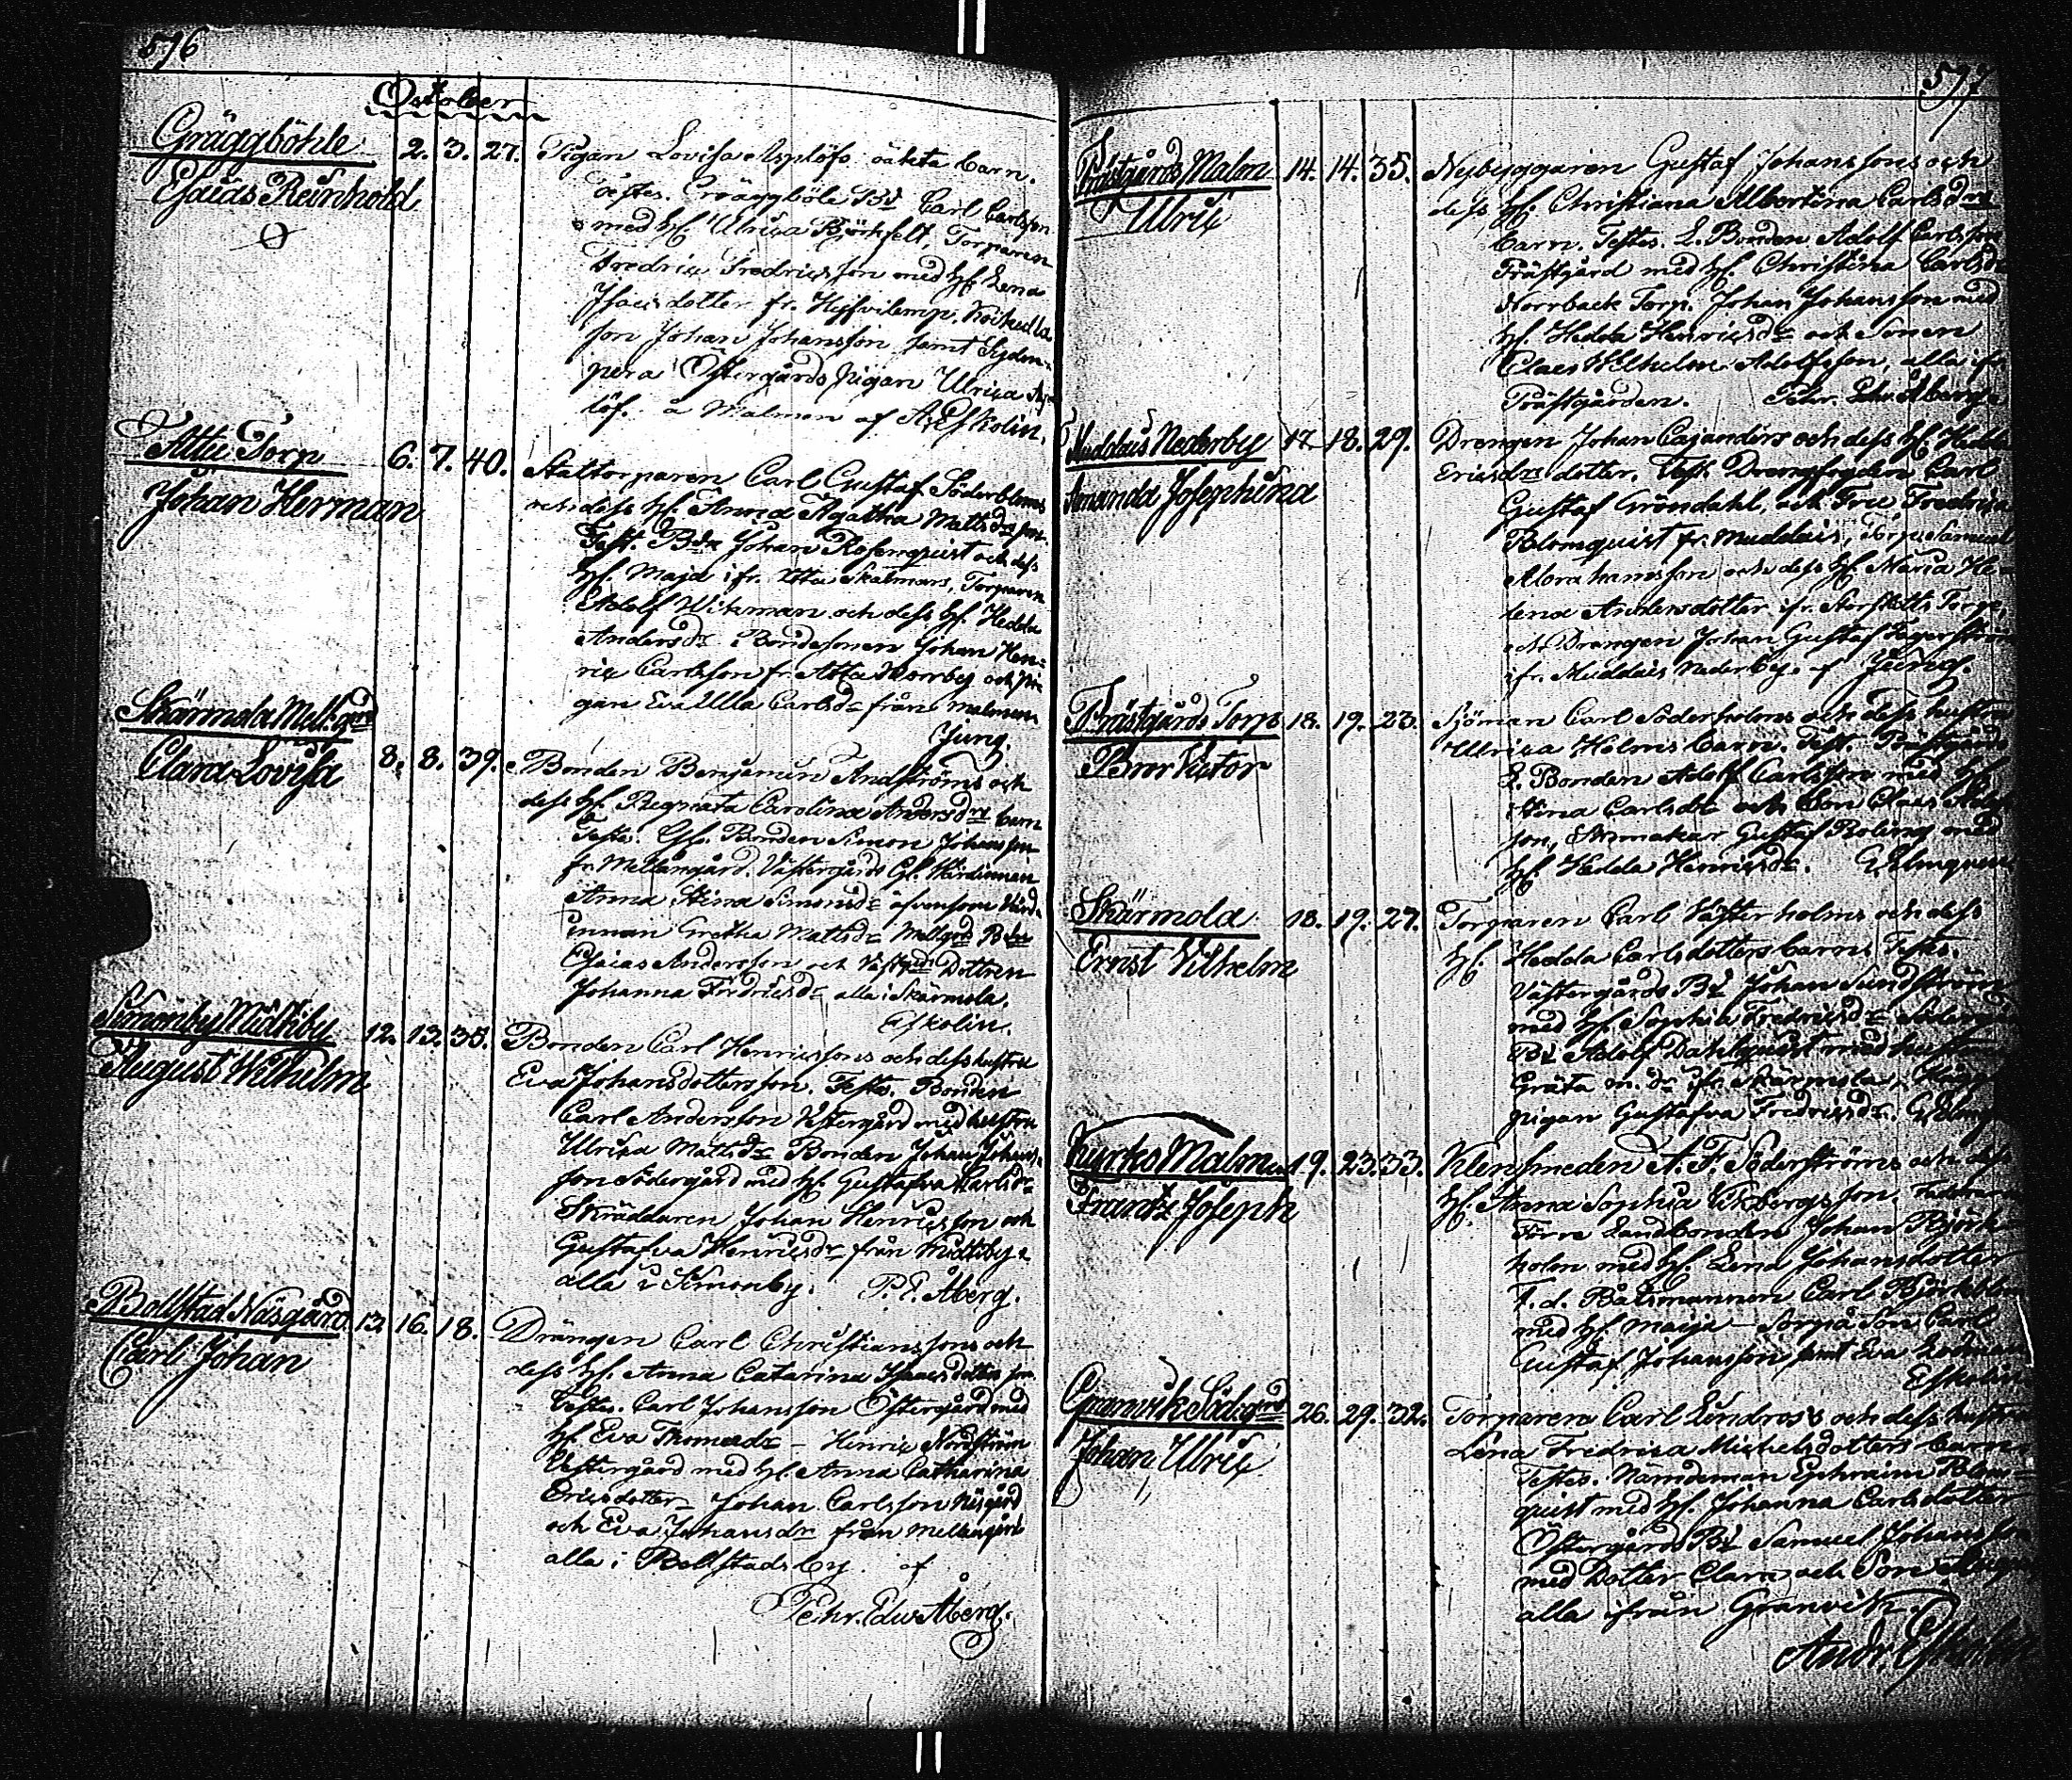 576
October
Gräggböhle 2. 3. 27. Pigan Lovisa Asplöfs oäkta barn.
Esaias Reinhold Testes. Gräggböle Bd. Carl Carlsson
med H. Ulrica Björkfelt, Torparen
Fredric Fredricsson med H. Lena
Isacsdotter fr.
son Johan Johansson samt
Östergårds pigan Ulrica Asp-
löf. a Malmen af A. Eskolin.
Attu Torp 6. 7. 40. Stattorparen Carl Gustaf Söderbloms
Johan Herman och dess H. Anna Agatha Mattsdr son.
Test. Bdn Johan Rosenquist och dess
H. Maja ifr. Attu Skalmars, Torparen
Adolf Wikman och dess H. Hedda
Andersdr. Bondesonen Johan Hen=
ric Carlsson fr. Attu Norrby och Pi-
gan Eva Ulla Carlsdr från malmen
Jung.
Skärmola Mellgrd
Clara Lovisa 8. 8. 39. Bonden Benjamin Andströms och
dess H. Regnata Carolina Andersdrs barn
Testes. Gl. Bonden Simon Johansson
fr. Mellangård. Västergårds Gl. Värdinnan
Anna Stina Simonsdr äfvensom Värd-
innan Gretha Mattsdr Mellgrds Bdn
Esaias Andersson och Västgrds Dottren
Johanna Fredricsdr alla i Skärmola.
Eskolin.
Simonby Midtiby 12. 13. 35. Bonden Carl Henricssons och dess hustru
August Wilhelm Eva Johansdotters son. Testes. Bonden
Carl Andersson Västergård med hustru
Ulrica Mattsdr Bonden Johan Johans-
son Södergård med H. Gustafva Carlsdr
Skräddaren Johan Henricsson och
Gustafva Henricsdr från Midtiby.
alla i Simonby. P. E. Åberg.
Bollstad Näsgård 13. 16. 18. Drängen Carl Christianssons och
Carl Johan dess H. Anna Catarina Isaacsdotters son
Testes. Carl Johansson Östergård med
H. Eva Thomasdr - Henric Nordström
Västergård med H. Anna Catharina
Ericsdotter - Johan Carlsson Näsgård
och Eva Johansdr från Mellangård
alla i Bollstads by. af
Pehr. Edw. Åberg.
577
Prästgårds Malm 14. 14. 35. Nybyggaren Gustaf Johanssons och
Ulric dess H. Christiana Albertina Carlsdrs
barn. Testes. L. Bonden Adolf Carlsson
Prästgård med H. Christina Carlsdr
Norrback Torp. Johan Johansson med
H. Hedda Henricsdr och Sonen
Claes Wilhelm Adolfsson, alla ifr.
Prästgården. Pehr. Edw. Åberg.
Muddais Nederby 17. 18. 29. Drengen Johan Cajanders och dess H. Hedda
Amanda Josephina Ericsdrs dotter. Test. Drengfogden Carl
Gustaf Gröndahl, och Fru Fredrica
Blomquist fr. Muddais, Torp. Samuel
Abrahamsson och dess H. Maria He-
lena Andersdotter ifr. Torp,
och Drengen Johan Gustaf Fagerström
ifr. Muddais Nederby. af Jung.
Prästgårds Torp 18. 19. 23. Sjöman Carl Söderholms och dess hustru
Bror Victor Ulrica Holms barn. Test. Prästgårds
L. Bonden Adolf Carlsson med H.
Stina Carlsdr och Son Claes Adolfs-
son, Skomakar Gustaf Boling med
H. Hedda Henricsdr.
Skärmola 18. 19. 27. Torparen Carl Västerholms och dess
Ernst Vilhelm H. Hedda Carlsdotters barn. Testes.
Västergårds Bd Johan Sundström
med H. Sophia Fredricsdr
Bd Adolf Dahlquist med hustru
Gräta M.dr ifr. Skärmola,
pigan Gustafva Fredricsdr.
Kyrko Malmen 19. 23. 33. Klensmeden A. F. Söderströms och dess
Frantz Joseph H. Anna Sophia Vikbergs son.
Förre Landbonden Johan Björk-
holm med H. Lena Johansdotter
F. d. Båtsmannen Carl Björkblom
med H. Maija - Sorpå Son Carl
Gustaf Johansson samt Eva
Eskolin
Granvik Södegrd 26. 29. 32. Torparen Carl Lindross och dess hustru
Johan Ulric Lena Fredrica Michelsdotters barn.
Testes. Nämdeman Ephraim Blom=
quist med H. Johanna Carlsdotter
Östergårds Bd Samuel Johansson
med Dotter Clara och Son August
alla ifrån Granvik.
Andr. Eskolin